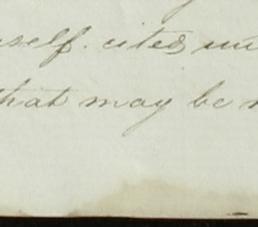 self. cites
that may be